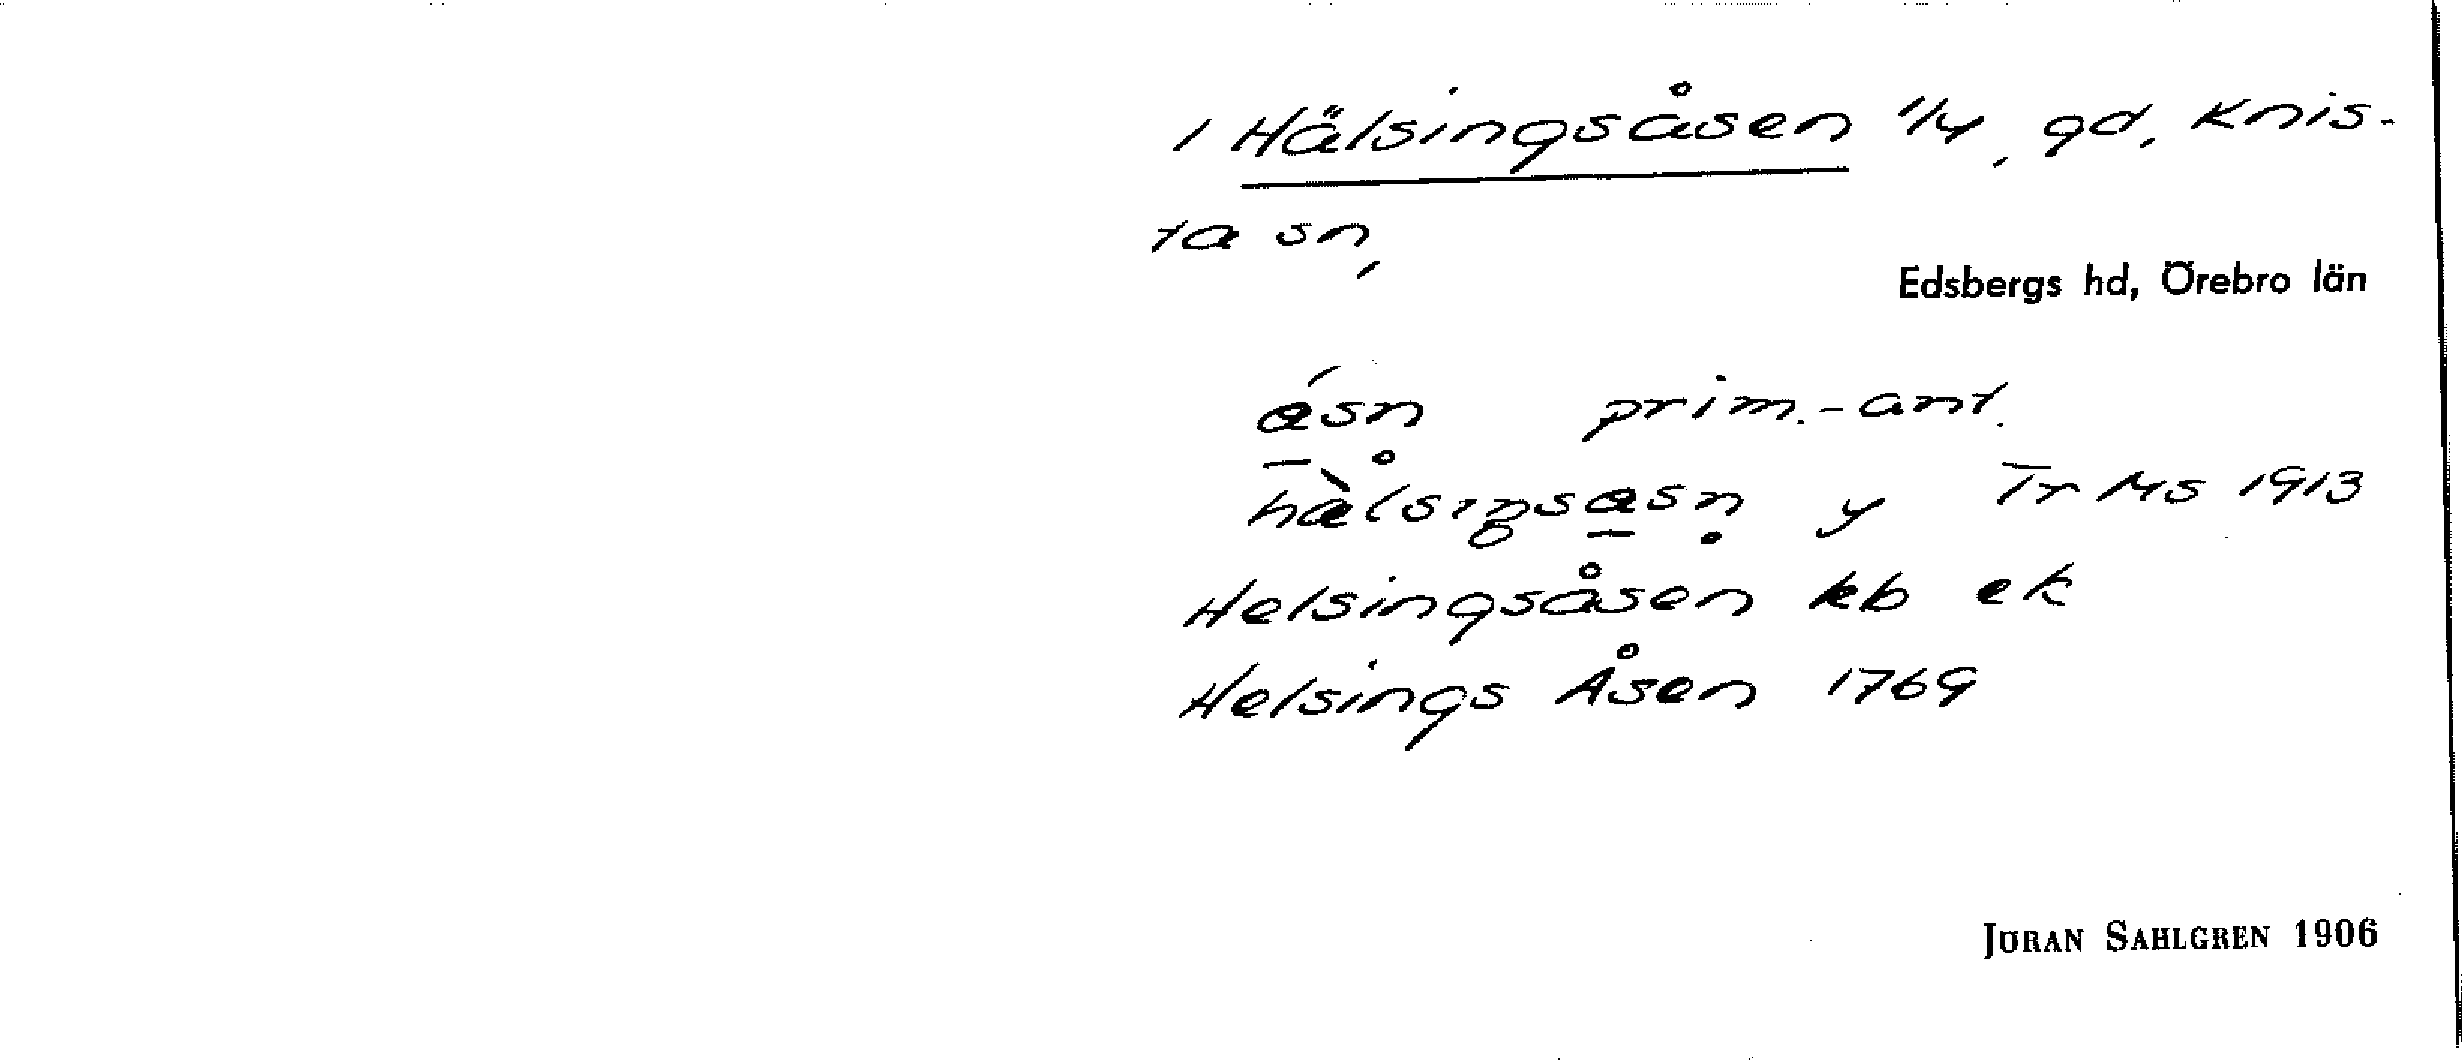 1 Hälsingsåsen 1/4, gd, Knis-
ta sn,
Edsbergs hd, Örebro län
prim.-ant.
y Tr Ms 1913
Helsingsåsen kb ek
Helsings Åsen 1769
JÖRAN SAHLGREN 1906